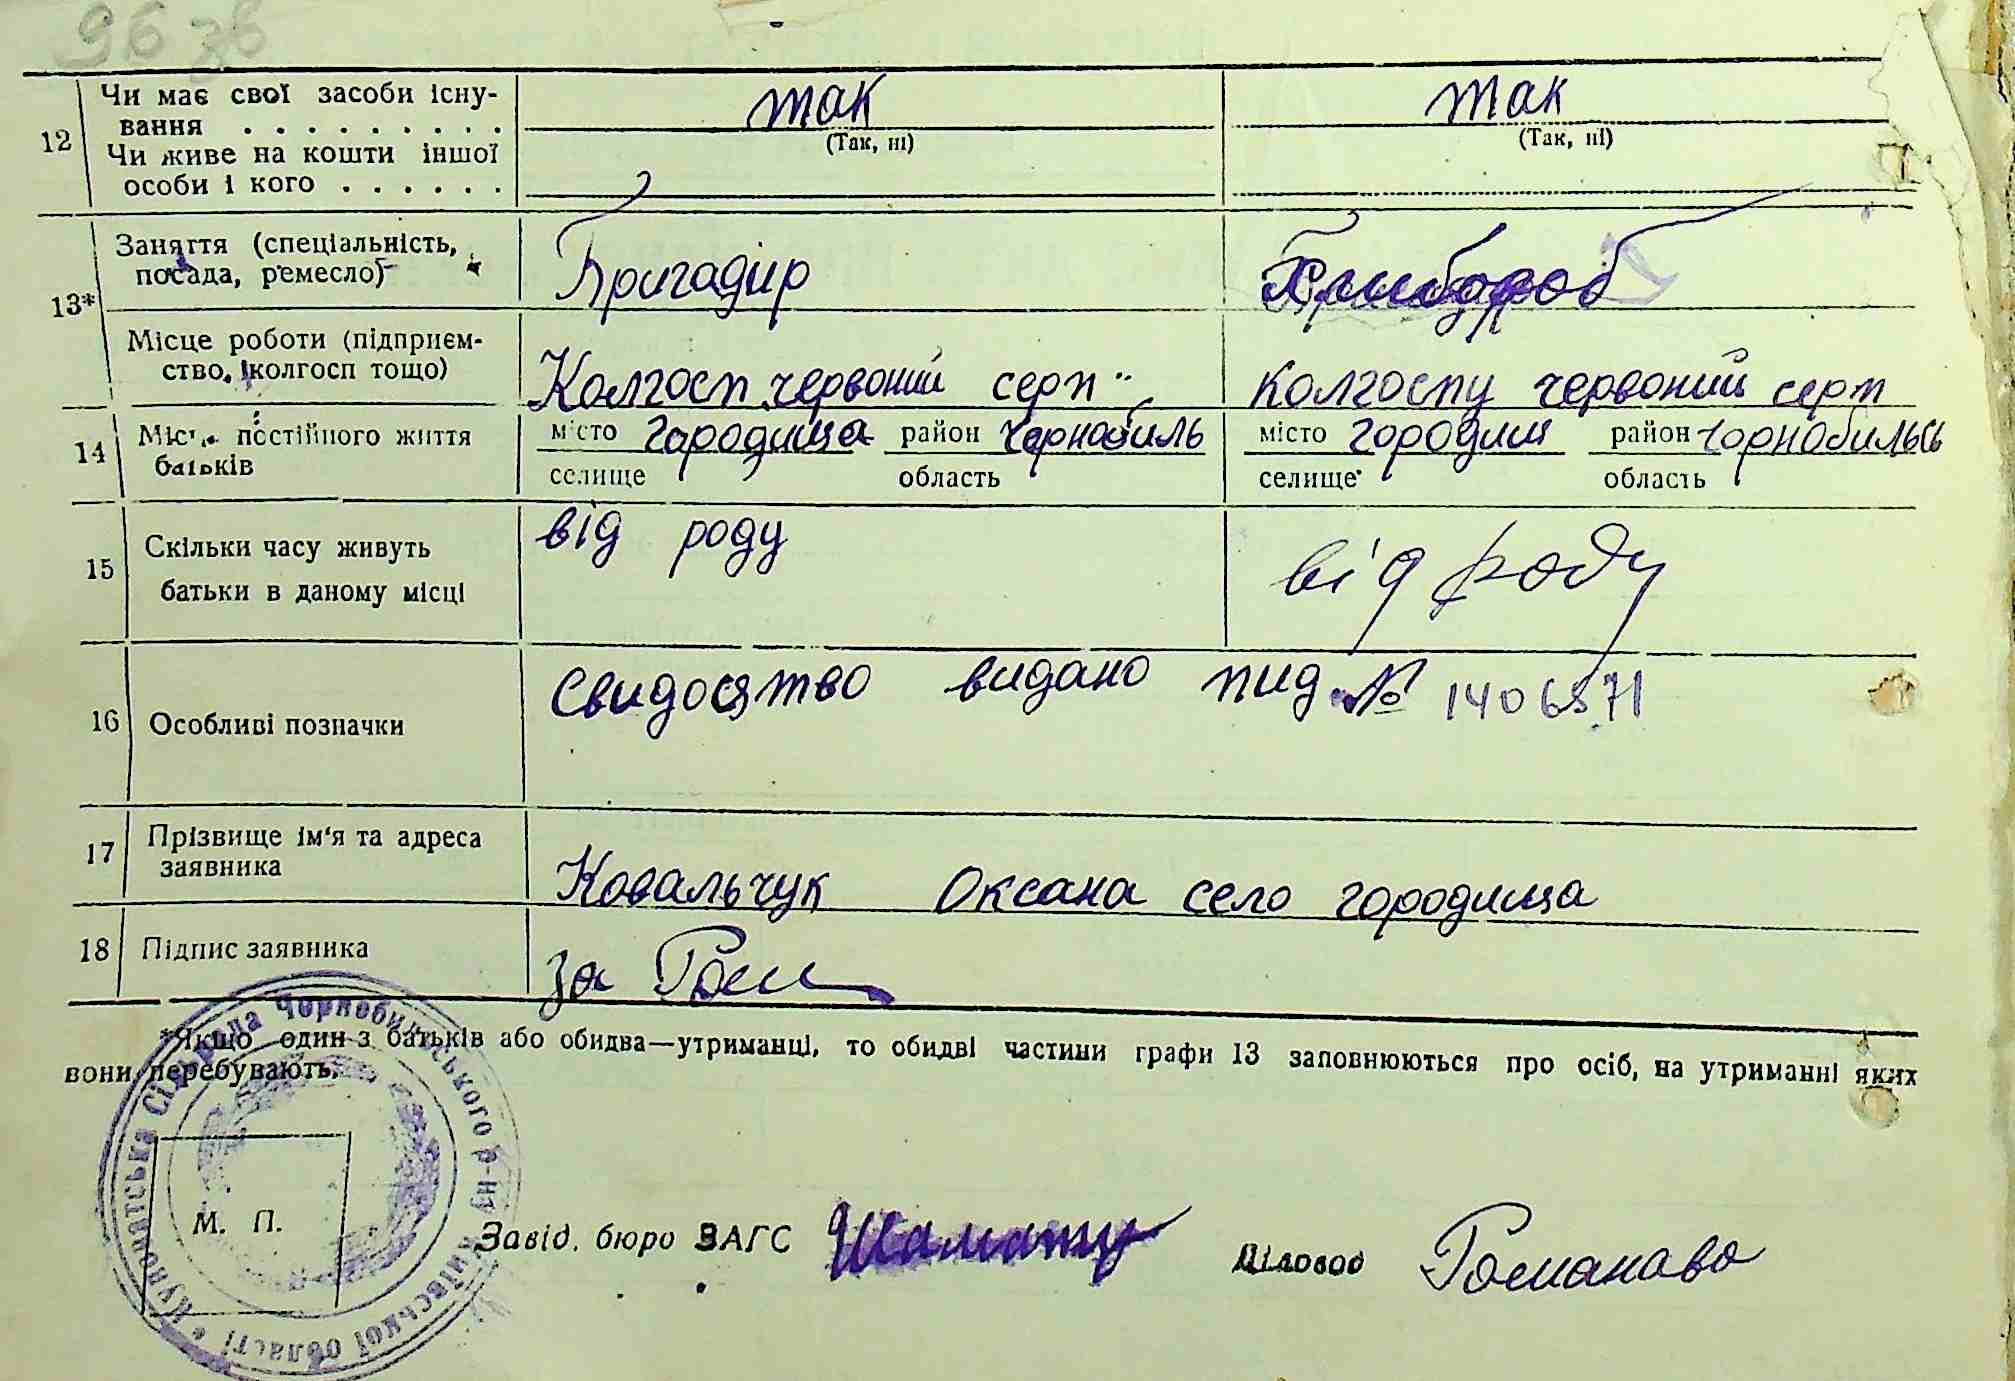 96 зв
12 Чи має свої засоби існу-
вання . . . . . . . . . так так
(Так, ні) (Так, ні)
Чи живе на кошти іншої
особи і кого . . . . . .
13* Заняття (спеціальність,
посада, ремесло) Бригадир Хлибороб
Місце роботи (підприєм-
ство, колгосп тощо) Колгосп червоний серп" колгоспу червоний серп
14 Місце постійного життя
батьків
місто городища район Чорнобиль місто городищ район Чорнобильсь
селище область селище область
15 Скільки часу живуть
батьки в даному місці
від роду від роду
16 Особливі позначки
Свидоцтво видано пид № 1406571
17 Прізвище ім'я та адреса
заявника
Ковальчук Оксана село городища
18 Підпис заявника за
*Якщо один з батьків або обидва—утриманці, то обидві частини графи 13 заповнюються про осіб, на утриманні яких
вони перебувають.
Сільрада Чорнобильського р-ну Київської області
М. П.
Завід. бюро ЗАГС Діловод Романова